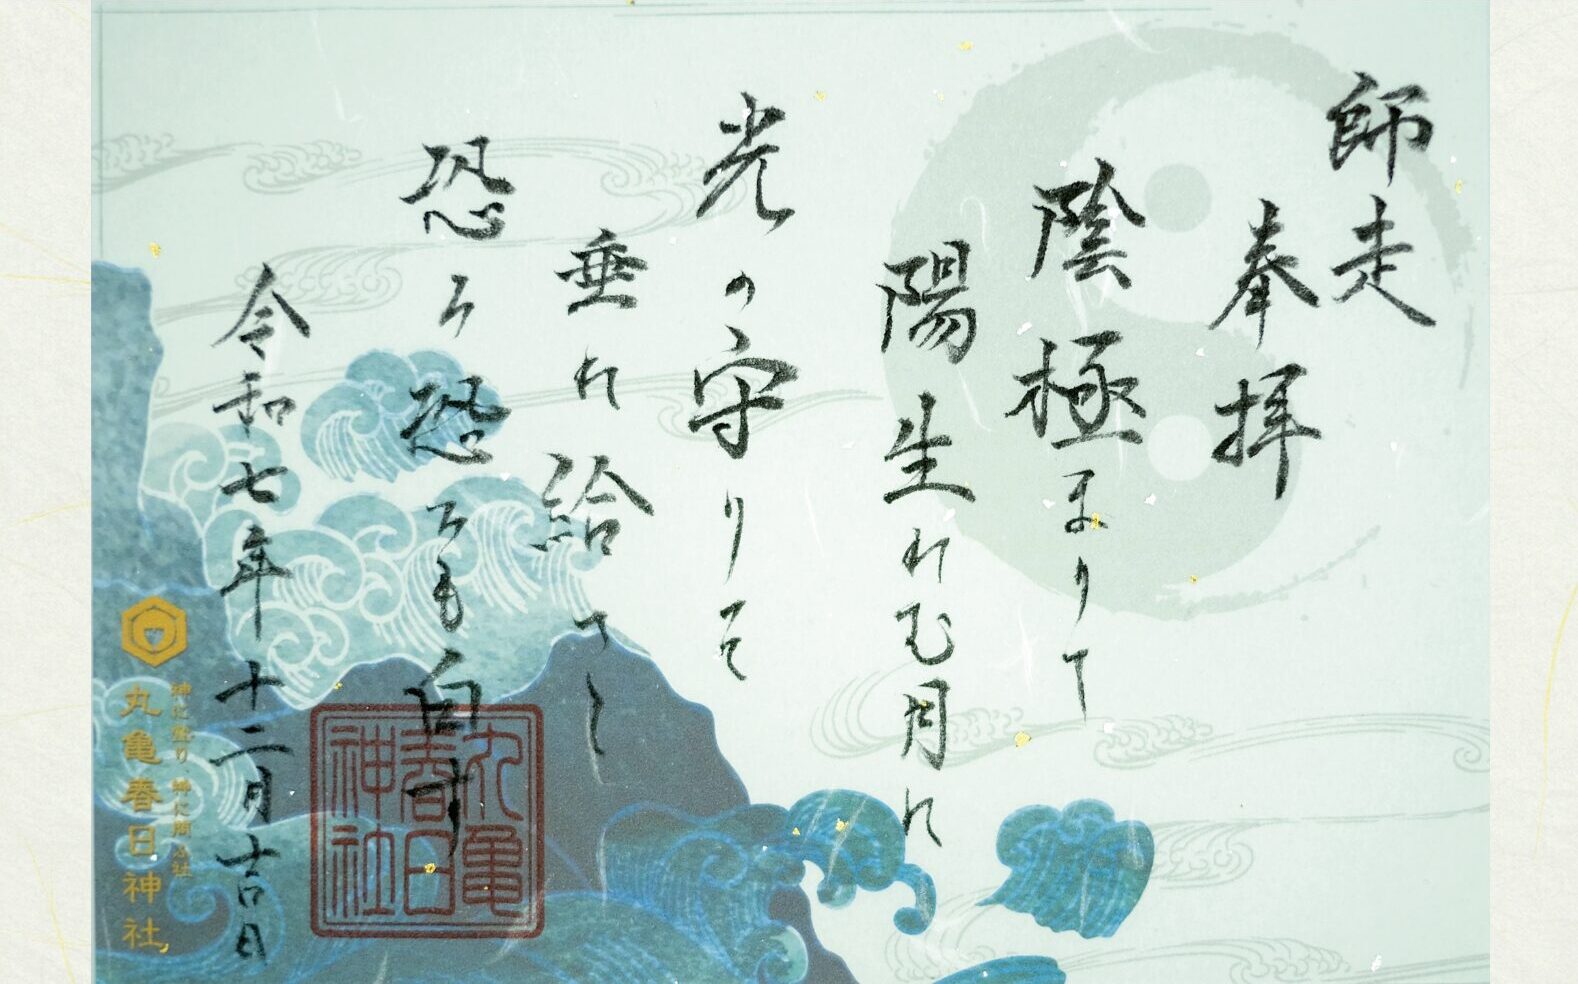 師走
奉拝
陰極まりて
陽生れむ月に
光の守りを
垂れ給
恐み恐みも白す
令和七年十二月吉日
丸亀春日神社
丸亀
春日
神社